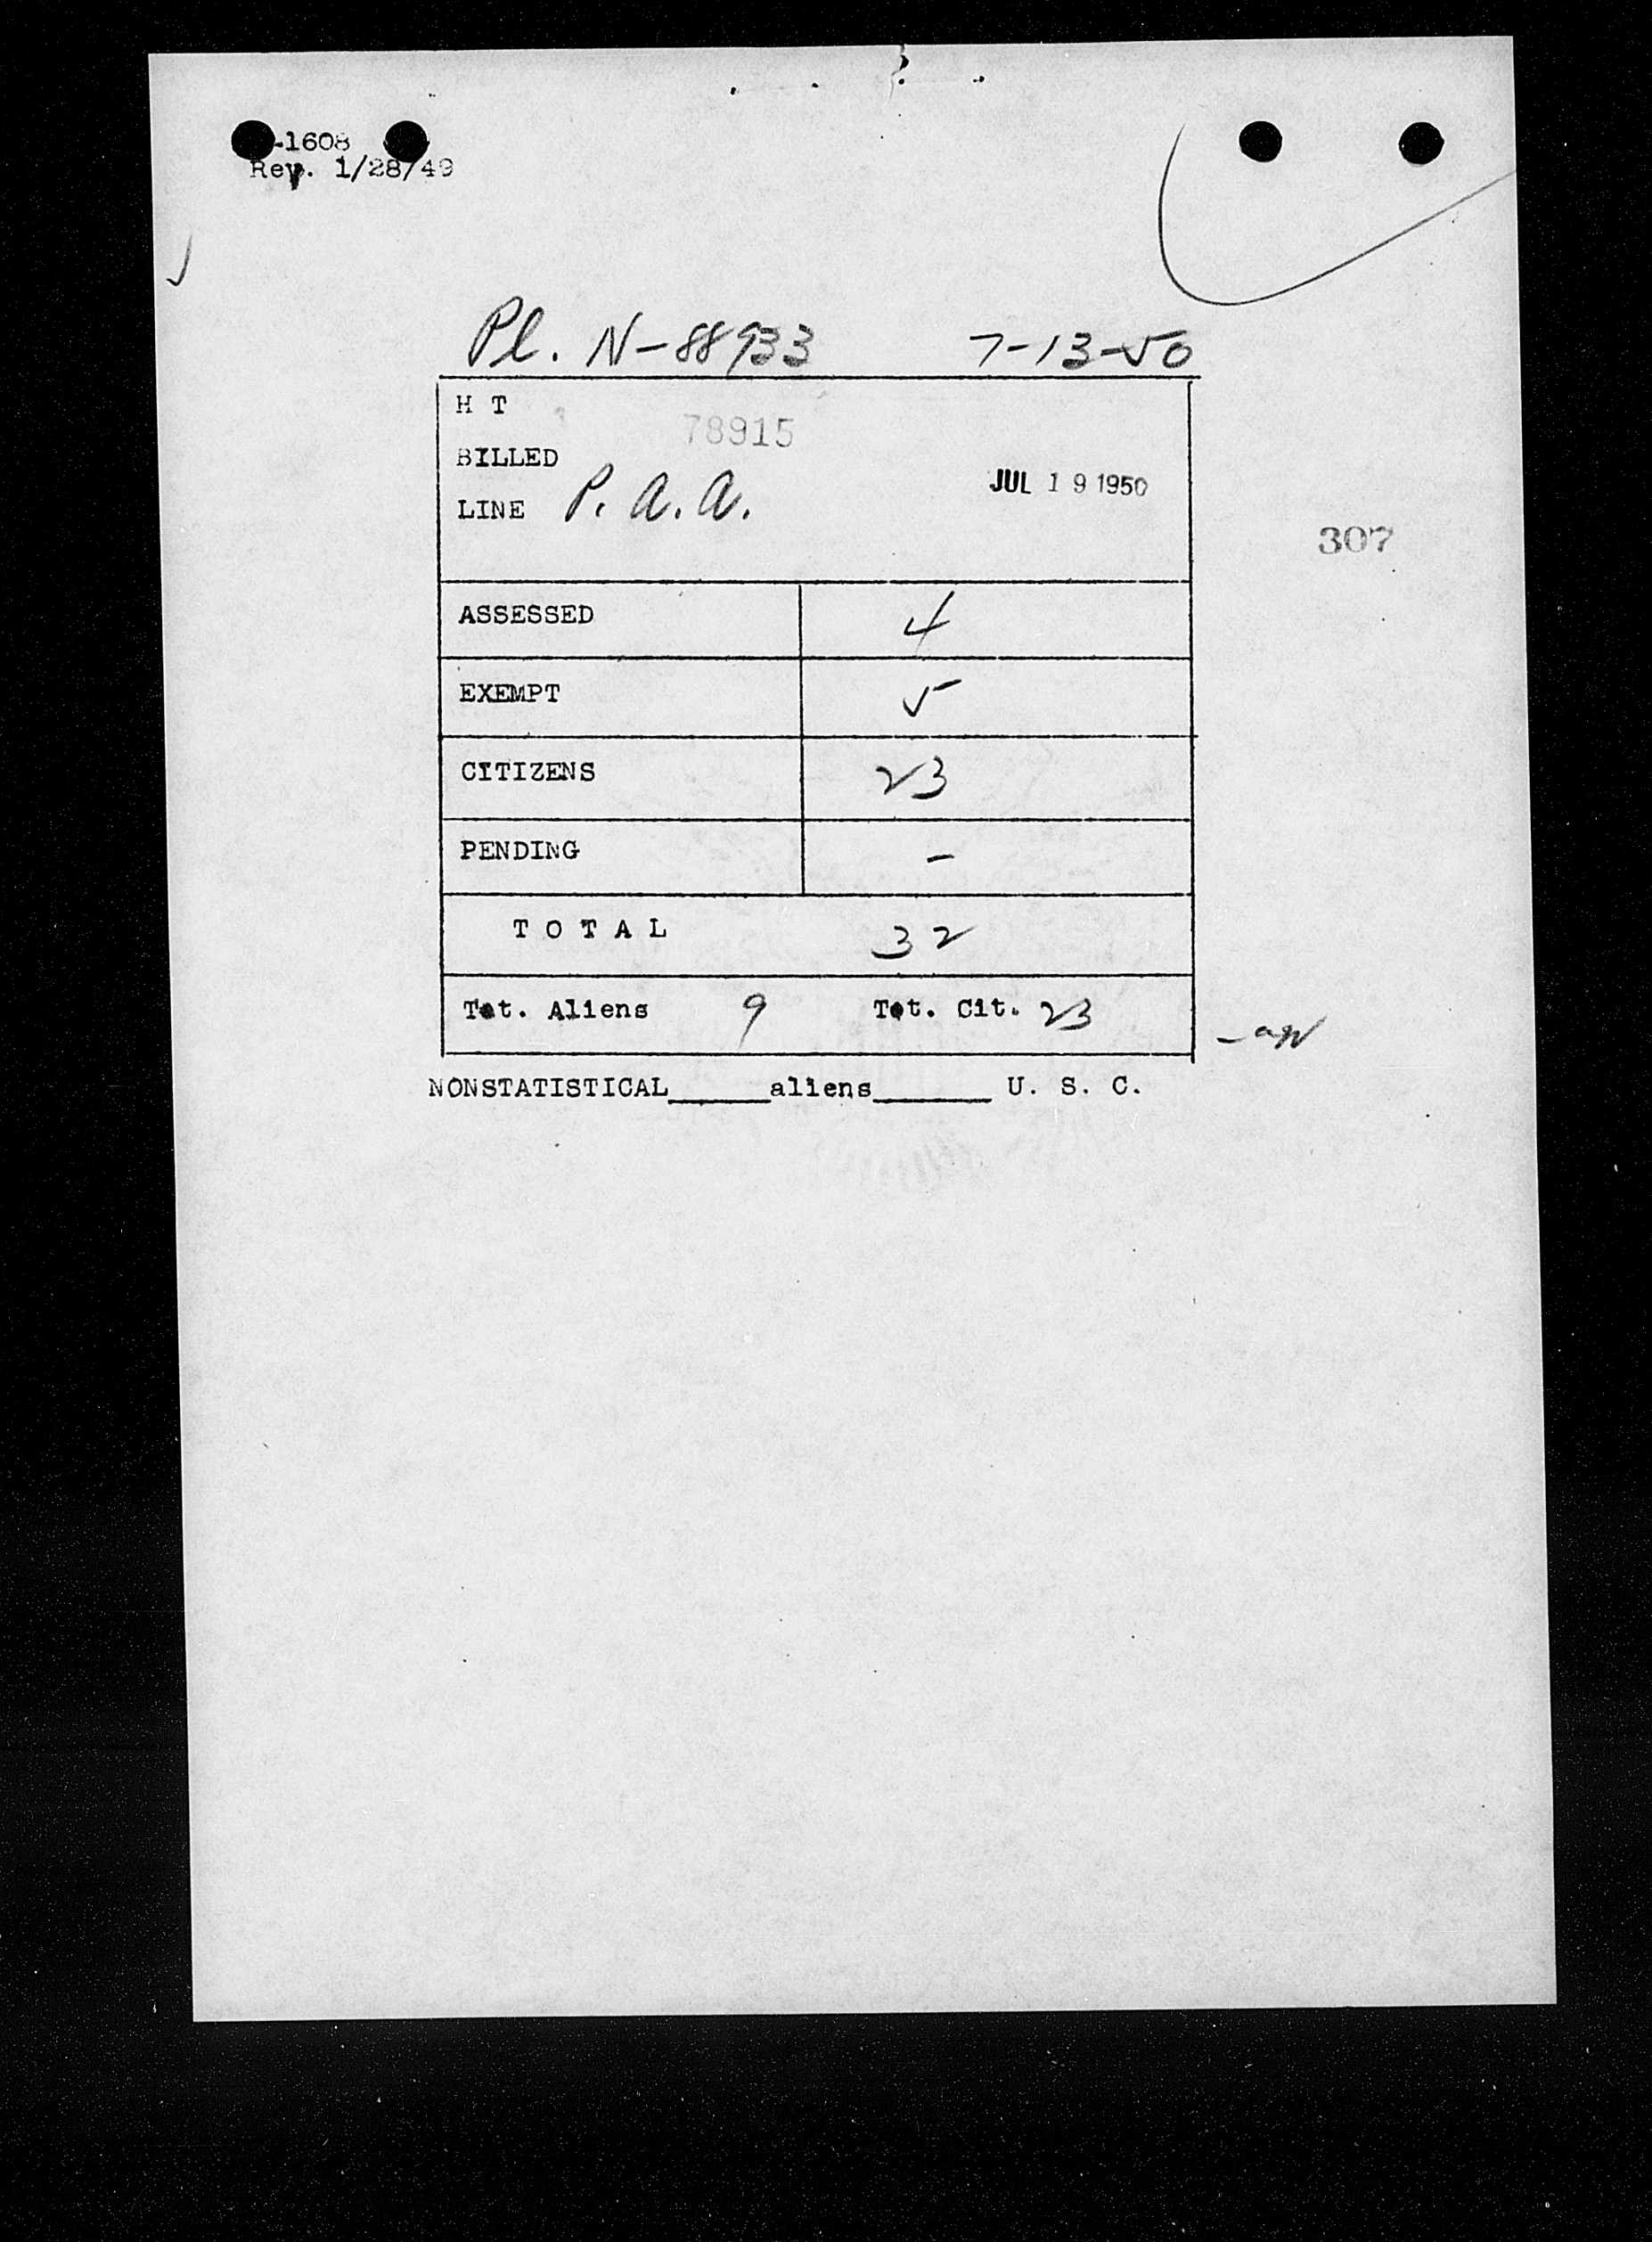 -1608
Rev. 1/28/49
Pl. N-88933 7-13-50
H T
78915
BILLED
JUL 19 1950
LINE P. A. A.
307
ASSESSED 4
EXEMPT 5
CITIZENS 23
PENDING -
T O T A L 32
Tot. Aliens 9 Tot. Cit. 23
NONSTATISTICAL______aliens_______ U. S. C.